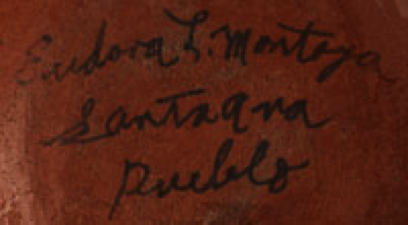 Eudora L. Montoya
Santaana
Pueblo